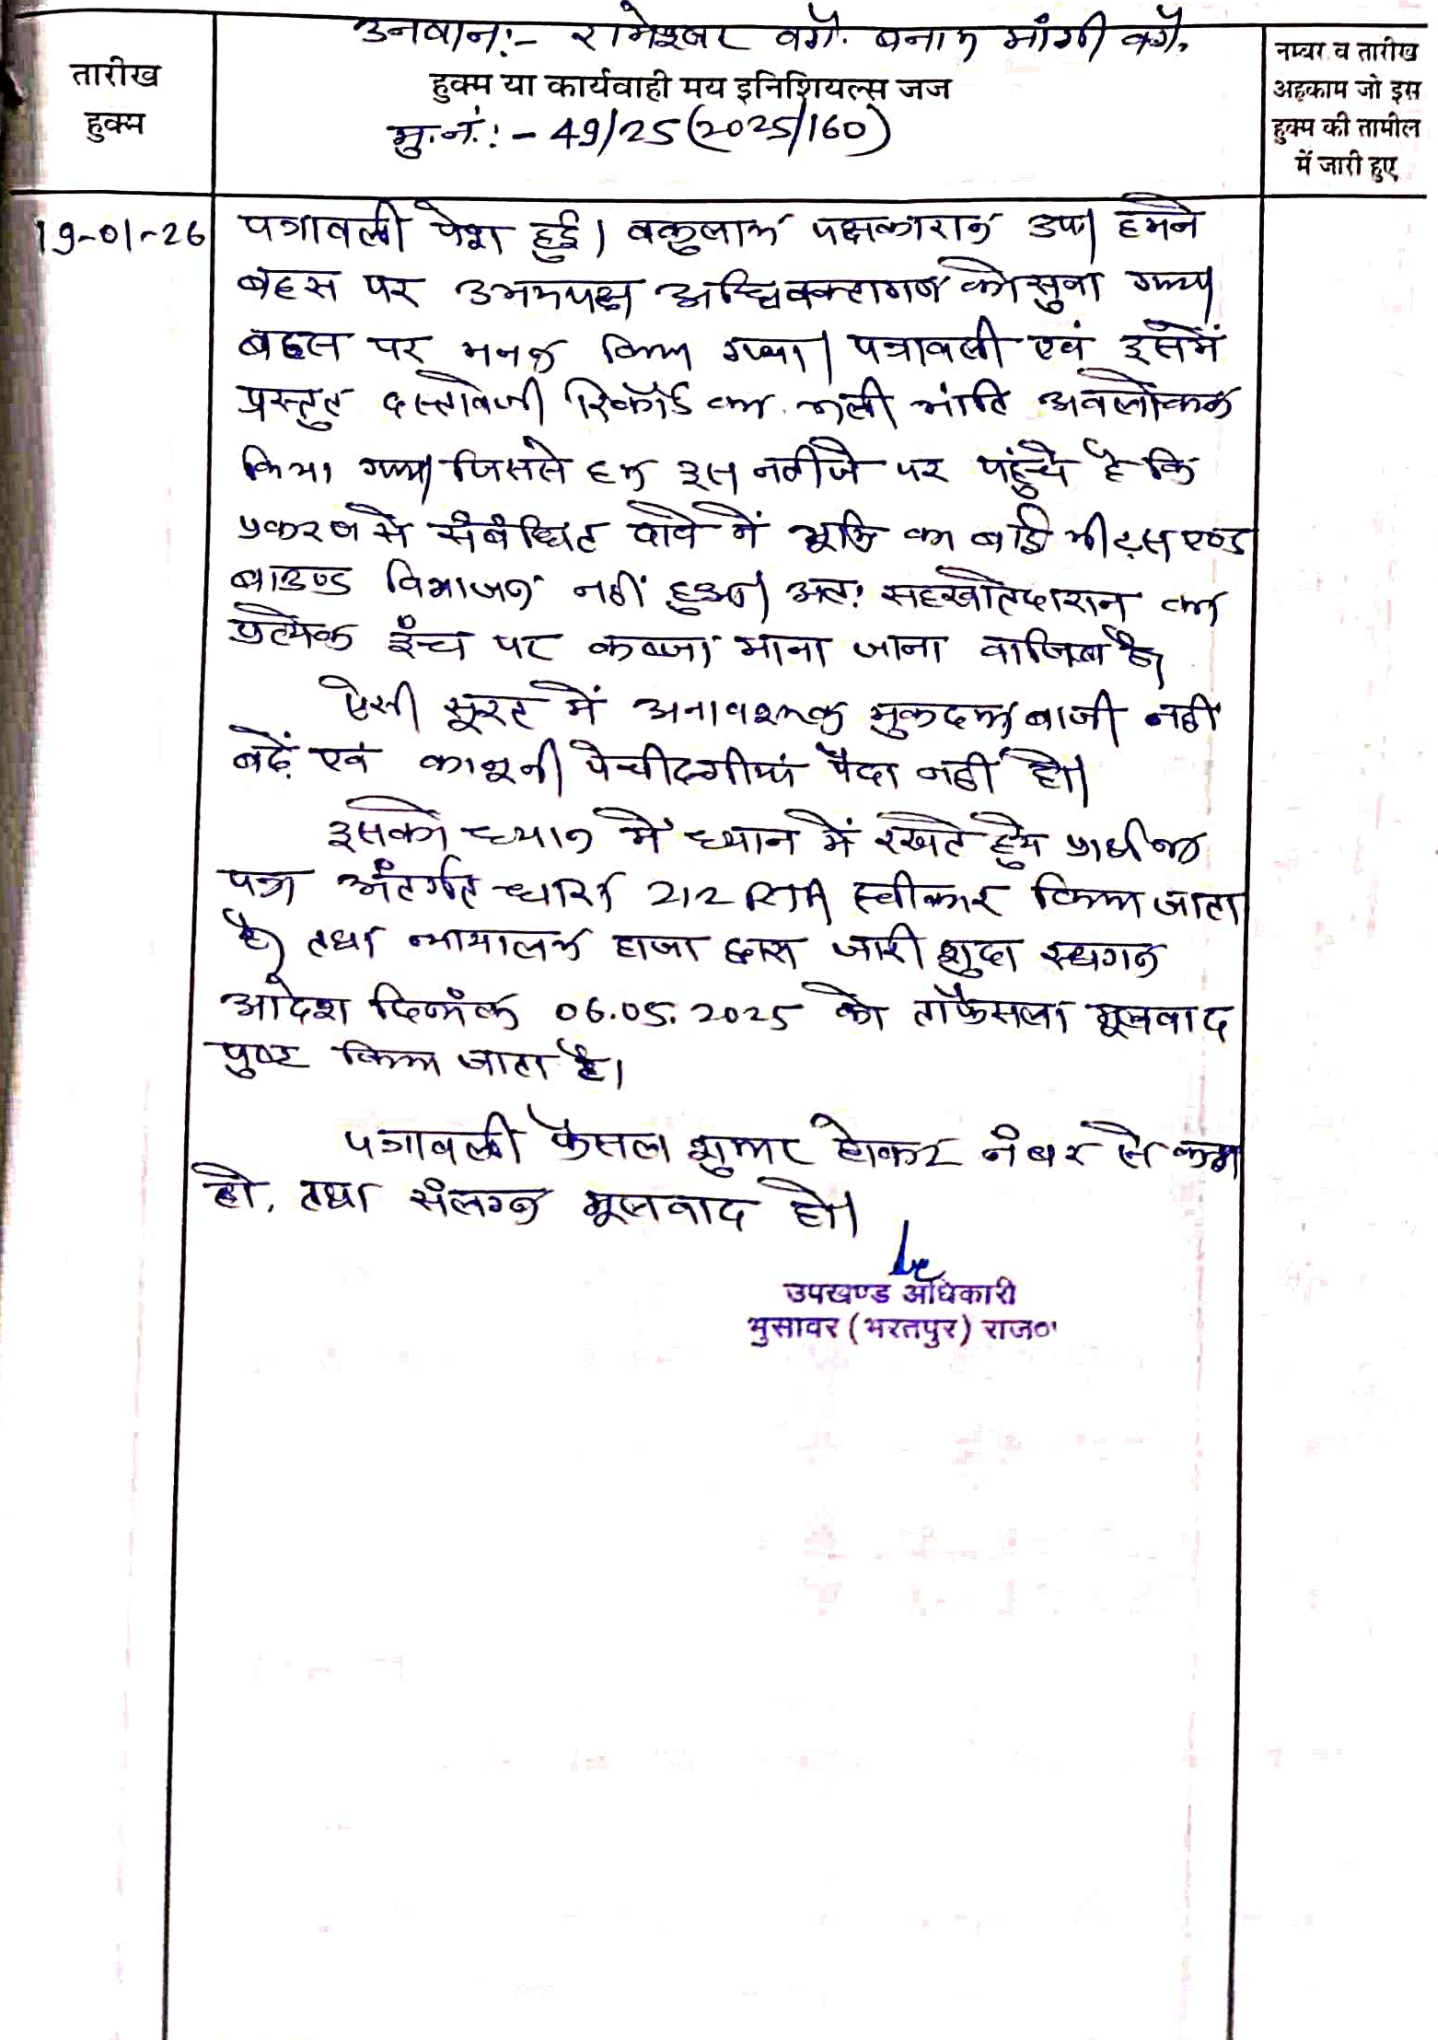 उनवान:- रामेश्वर वगै. बनाम मांगी वगै.
तारीख
हुक्म
हुक्म या कार्यवाही मय इनिशियल्स जज
मु.नं.:- 49/25 (2025/160)
नम्बर व तारीख
अहकाम जो इस
हुक्म की तामील
में जारी हुए
19-01-26
पत्रावली पेश हुई। वकुलान पक्षकारान उप। हमने
बहस पर उभयपक्ष अधिवक्तागण को सुना गया।
बहस पर मनन किया गया। पत्रावली एवं इसमें
प्रस्तुत दस्तावेजी रिकॉर्ड का भली भांति अवलोकन
किया गया। जिससे हम इस नतीजे पर पंहुचे है कि
प्रकरण से संबंधित दावे में भूमि का बाई मीट्स एण्ड
बाउण्ड विभाजन नहीं हुआ। अत: सहखातेदारान का
प्रत्येक इंच पर कब्जा माना जाना वाजिब है।
ऐसी सूरत में अनावश्यक मुकदमा बाजी नहीं
बढ़ें एवं कानूनी पेचीदगीयां पैदा नहीं हो।
इसको ध्यान में ध्यान में रखते हुये प्रार्थना
पत्र अंतर्गत धारा 212 RTA स्वीकार किया जाता
है, तथा न्यायालय हाजा द्वारा जारी शुदा स्थगन
आदेश दिनांक 06.05.2025 को ताफैसला मूलवाद
पुष्ट किया जाता है।
पत्रावली फैसल शुमार होकर नंबर से कम
हो, तथा संलग्न मूलवाद हो।
उपखण्ड अधिकारी
भुसावर (भरतपुर) राज०